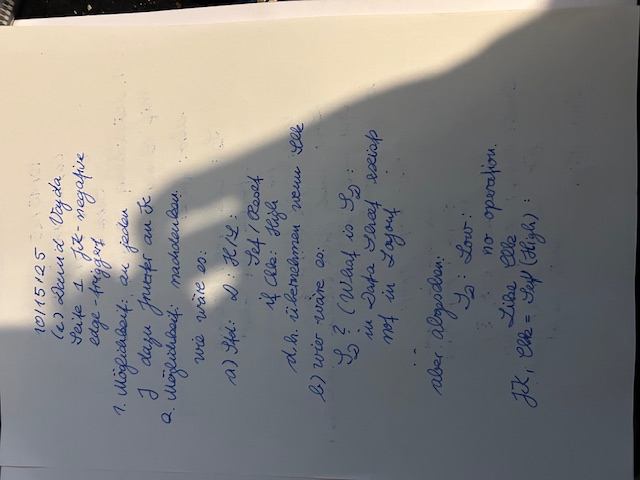 10/15/25
(c) David Vajda
Seite 1 JK-negative
edge-trigger
1. Möglichkeit: an jeden
J dazu Inverter an K
2. Möglichkeit: nachdenken.
wie wäre es:
a) D: H/L:
Set/Reset
if Clk: High
d.h. übernehmen wenn Clk
b) wie wäre es:
SD? (What is SD:
in Data Sheet exists
not in Layout
aber abgesehen:
SD: Low:
no operation.
Like Clk
JK, Clk = Set (High):